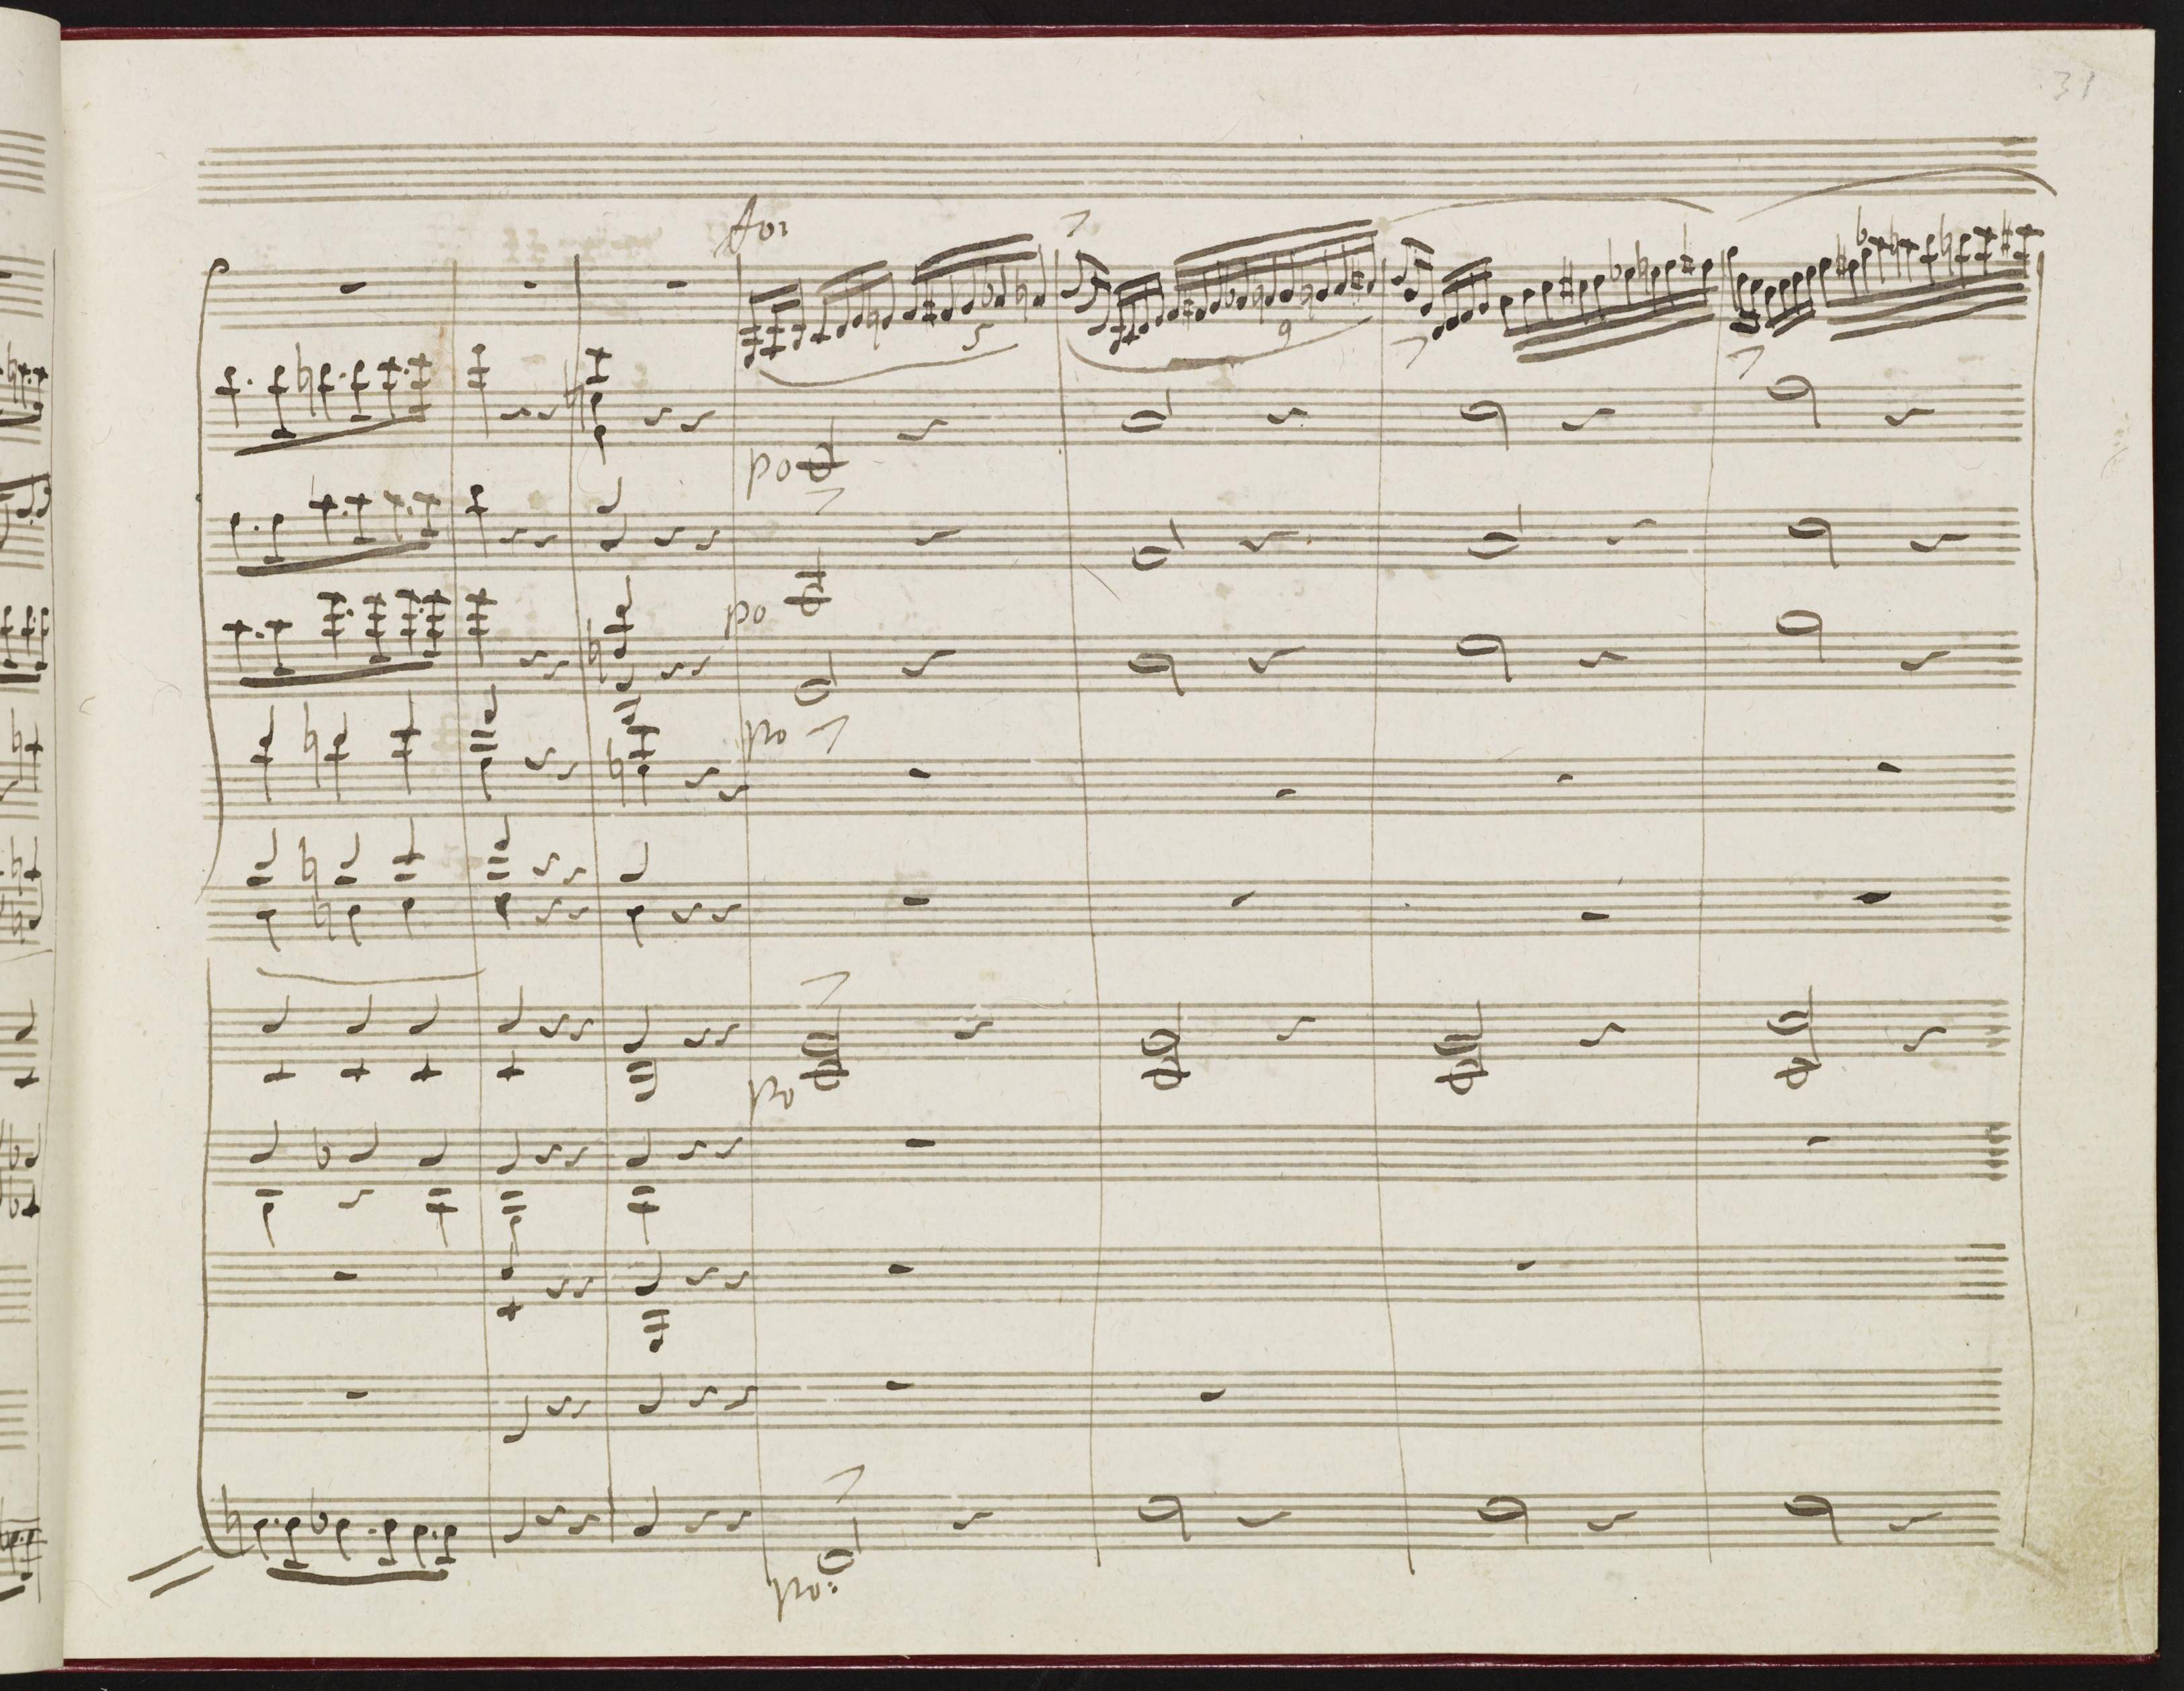 31
for
5
9
po
po
po
po
po: